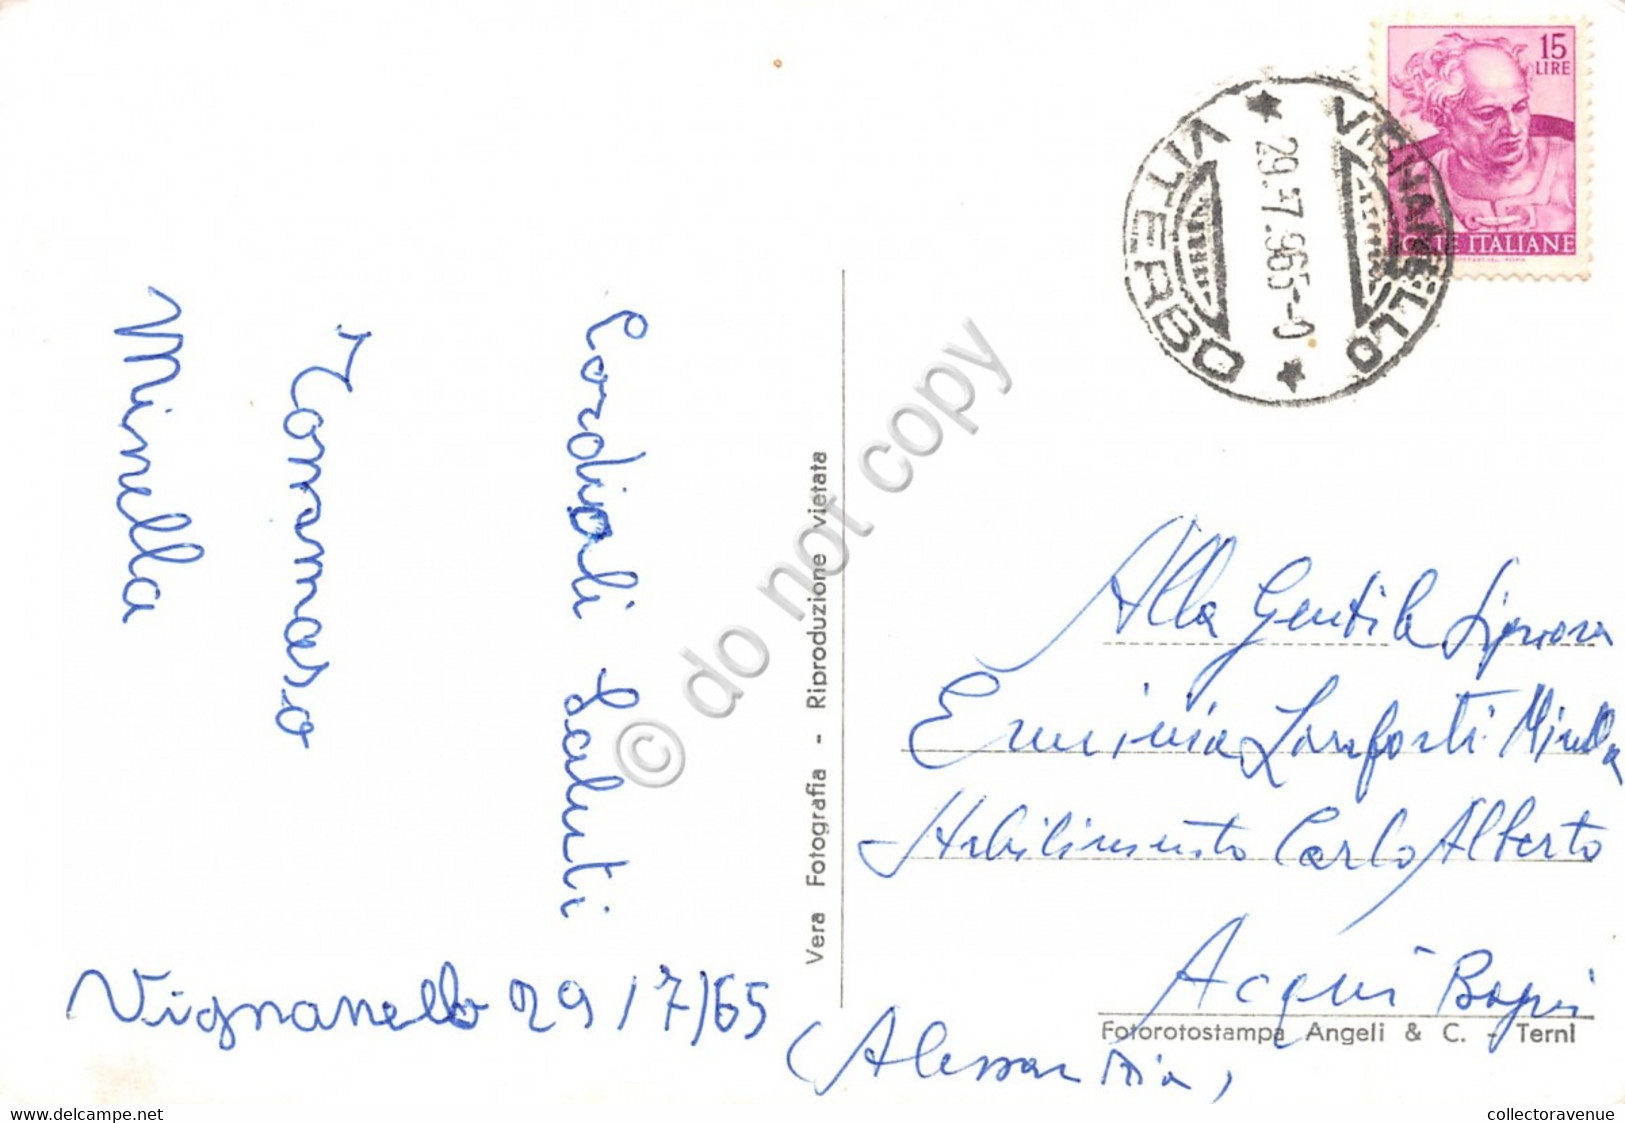 Cordiali Saluti
Tommaso
Minella
Vignanello 29/7/65
Vera Fotografia - Riproduzione vietata
15
LIRE
POSTE ITALIANE
VIGNANELLO
29.7.965-9
VITERBO
Alla Gentile Signora
Erminia Lanforti Minella
Stabilimento Carlo Alberto
Acqui
(Alessandria)
Fotorotostampa Angeli & C. - Terni
© do not copy
delcampe.net
collectoravenue